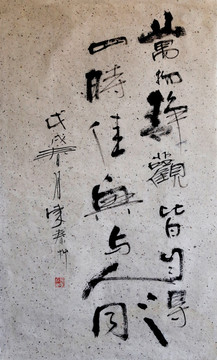 萬物靜觀皆自得
一時佳興与人同
戊戌春月